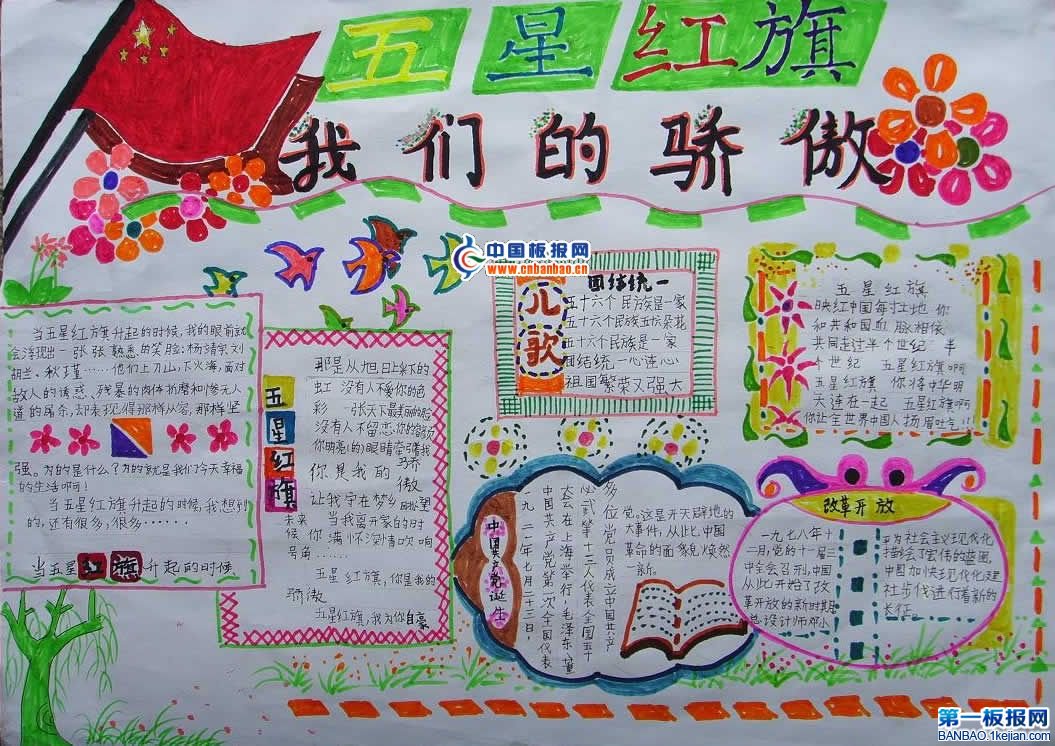 五星红旗
我们的骄傲
中国板报网
www.cnbanbao.cn
当五星红旗升起的时候,我的眼前就
会浮现出一张张熟悉的笑脸:杨靖宇刘
胡兰、秋瑾……他们上刀山,下火海,面对
敌人的诱惑、残暴的肉体折磨和惨无人
道的屠杀,却表现得那样从容,那样坚
强。为的是什么?为的就是我们今天幸福
的生活啊!
当五星红旗升起的时候,我想到
的,还有很多,很多……
当五星红旗升起的时候
五星红旗
那是从旭日上采下的
虹 没有人不爱你的色
彩 一张天下最美丽的脸
没有人不留恋你的容颜
你明亮的眼睛牵引我
你是我的骄傲
让我守在梦乡眺望
未来 当我离开家的时
候 你满怀深情吹响
号角……
五星红旗,你是我的
骄傲
五星红旗,我为你自豪
儿歌
团结统一
五十六个民族是一家
五十六个民族五六朵花
五十六个民族是一家
团结统一心连心
祖国繁荣又强大
五星红旗
映红中国每寸土地 你
和共和国血脉相依
共同走过半个世纪 半
个世纪 五星红旗啊
五星红旗 你将中华明
大连在一起 五星红旗啊
你让全世界中国人扬眉吐气!!
中国共产党诞生
一九二一年七月二十三日,
中国共产党第一次全国代表
大会在上海举行,毛泽东、董
心武等十三人代表全国五十
多位党员成立中国共产
党。这是开天辟地的
大事件,从此,中国
革命的面貌焕然
一新。
改革开放
一九七八年十
二月,党的十一届三
中全会召开,中国
从此开始了改
革开放的新时期
总设计师邓小
平为社会主义现代化
描绘了宏伟的蓝图,
中国加快现代化建
社步伐进行着新的
长征。
第一板报网
BANBAO.1kejian.com